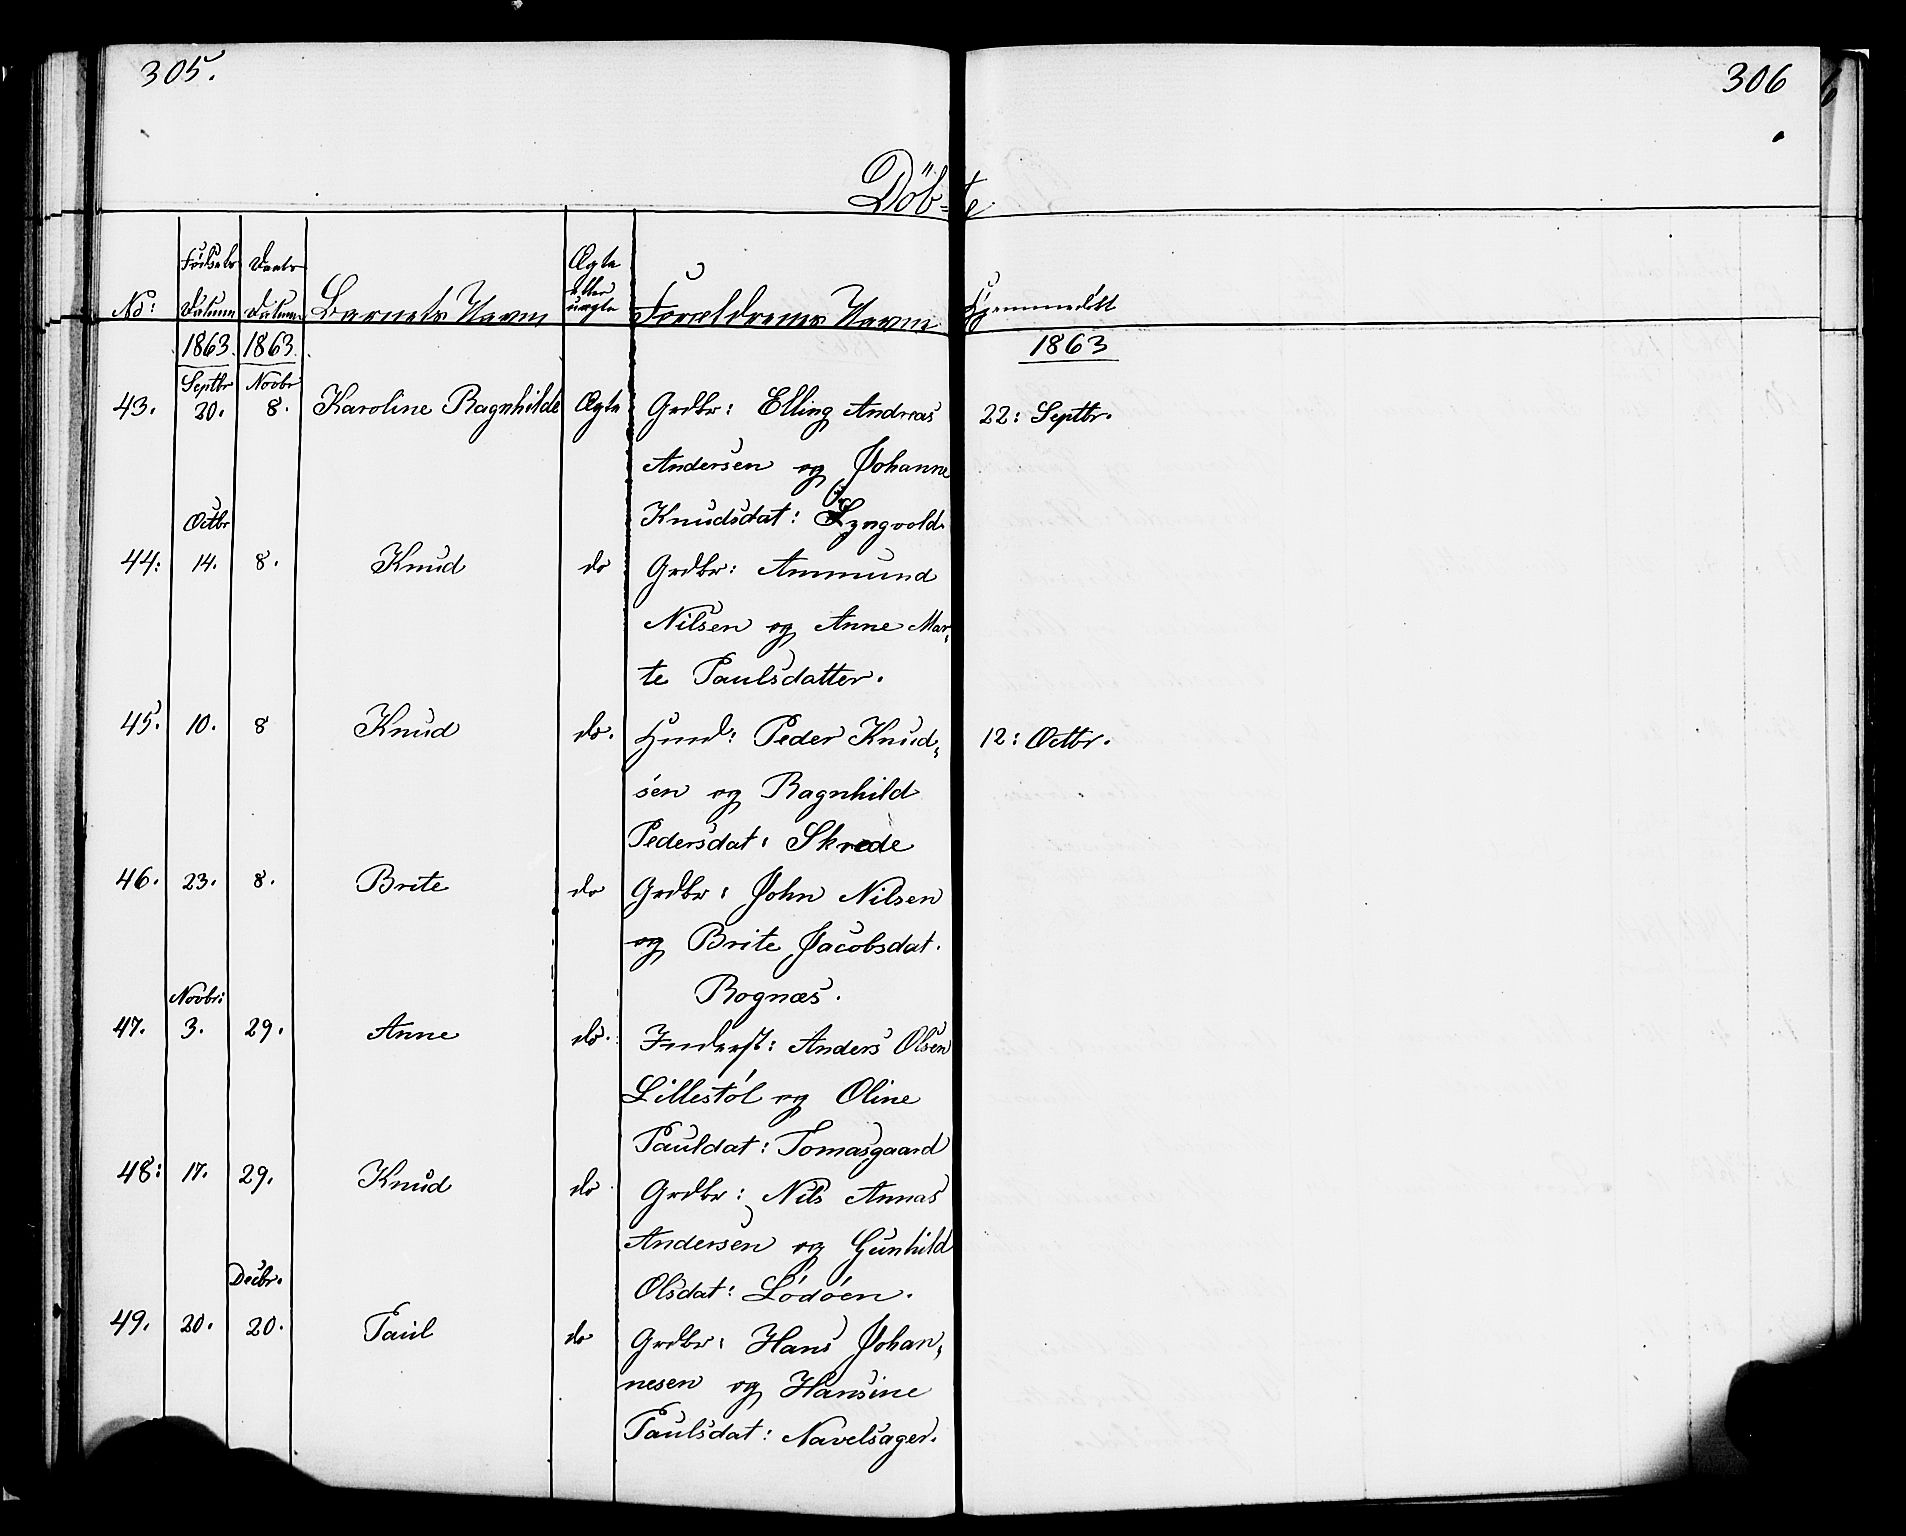 305.
306
Döb-te
No:
Fødsels Datum
Daabs Datum
Barnets Navn
Ægte eller uægte
Forældrenes Navn
Hjemmedøbt
1863. 1863. 1863
Septbr Novbr
43. 20. 8. Karoline Ragnhilde Ægte Grdbr: Elling Andreas 22: Septbr.
Andersen og Johanne
Knudsdat: Lyngvold
Octbr
44: 14. 8. Knud do Grdbr: Ammund
Nilsen og Anne Mar-
te Paulsdatter.
45. 10. 8 Knud do. Hmd: Peder Knud- 12: Octbr.
sen og Ragnhild
Pedersdat: Skrede
46. 23. 8. Brite do Grdbr: John Nilsen
og Brite Jacobsdat.
Rognæs.
Novbr:
47. 3. 29. Anne do. Inderst: Anders Olsen
Lillestøl og Oline
Pauldat: Tomasgaard
48: 17. 29. Knud do Grdbr: Nils Annas
Andersen og Gunhild
Olsdat: Lödöen.
Decbr.
49. 20. 20. Paul do Grdbr: Hans Johan-
nesen og Hansine
Paulsdat: Navelsager.